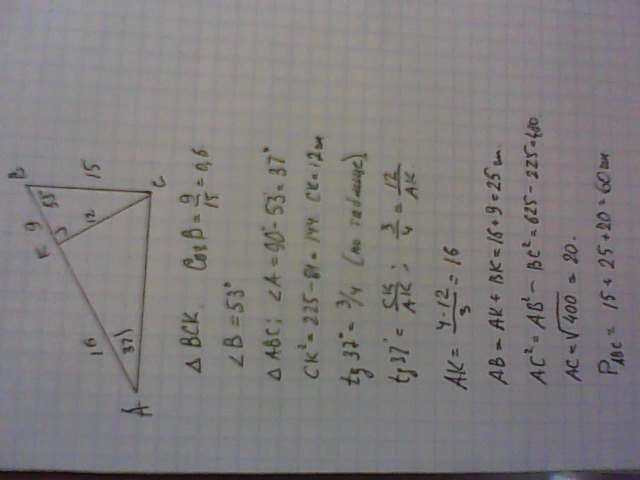 B
53°
15
9
K
12
C
16
37°
A
△ BCK. Cos B = 9/15 = 0,6
∠B = 53°
△ ABC; ∠A = 90° - 53° = 37°
CK² = 225 - 81 = 144 CK = 12 см
tg 37° = 3/4 (по таблице)
tg 37° = CK/AK; 3/4 = 12/AK.
AK = 4·12/3 = 16
AB = AK + BK = 16 + 9 = 25 см.
AC² = AB² - BC² = 625 - 225 = 400.
AC = √400 = 20.
P ABC = 15 + 25 + 20 = 60 см